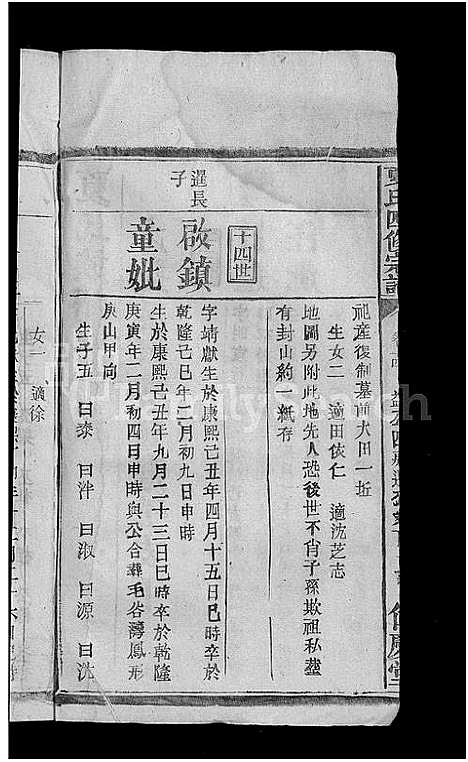 氏四修宗譜
祀產復制墓前大田一坵
生女二 適田依仁 適沈芝志
地圖另附此地先人恐後世不肖子孫欺祖私塟
有封山約一紙存
十四世
暹長子
啟鎮
童妣
字靖獻生於康熙己丑年四月十五日巳時卒於
乾隆己巳年二月初九日申時
生於康熙己丑年九月二十三日巳時卒於乾隆
庚寅年二月初四日申時與公合塟毛谷灣鳳形
庚山甲向
生子五 曰泰 曰泮 曰淑 曰源 曰沇
女一 適徐